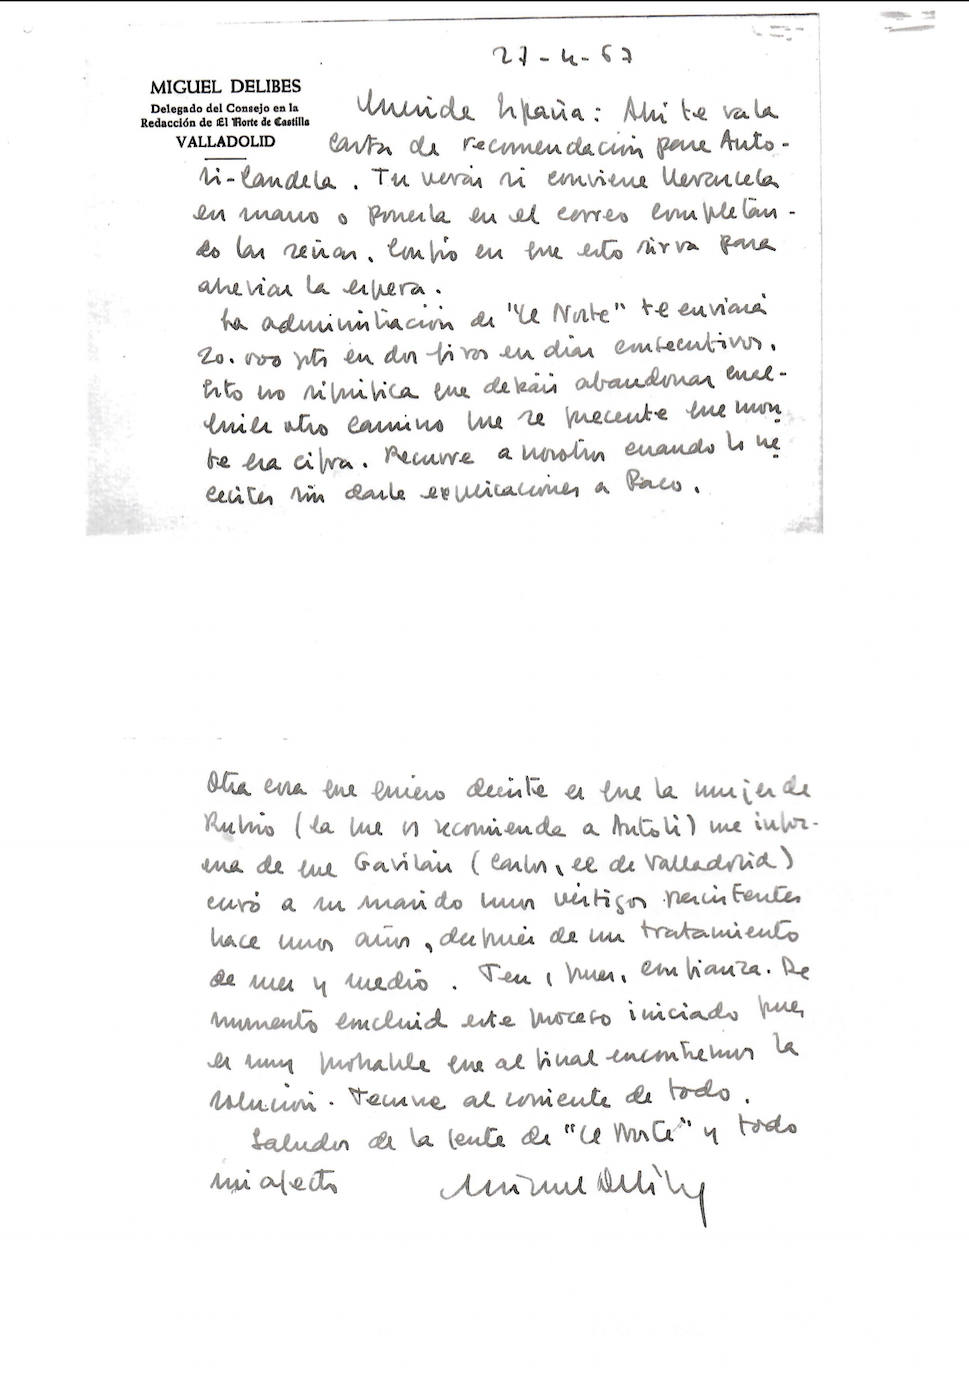 27-4-67
MIGUEL DELIBES
Delegado del Consejo en la
Redacción de El Norte de Castilla
VALLADOLID
Querida España: Ahí te va la
carta de recomendación para Anto-
li-Candela. Tu verás si conviene llevársela
en mano o ponerla en el correo completan-
do las señas. Confío en que esto sirva para
abreviar la espera.
La administración de "El Norte" te enviará
20.000 pts en dos giros en días consecutivos.
Esto no significa que debáis abandonar cual-
quier otro camino que se presente que mon
te esa cifra. Recurre a nosotros cuando lo ne
cesites sin darle explicaciones a Paco.
Otra cosa que quiero decirte es que la mujer de
Rubio (la que os recomienda a Antoli) me infor-
ma de que Gavilán (Carlos, el de Valladolid)
curó a su marido unos vértigos persistentes
hace unos años, después de un tratamiento
de mes y medio. Ten, pues, confianza. De
momento concluid este proceso iniciado pues
es muy probable que al final encontremos la
solución. Tenme al corriente de todo.
Saludos de la gente de "El Norte" y todo
mi afecto Miguel Delibes